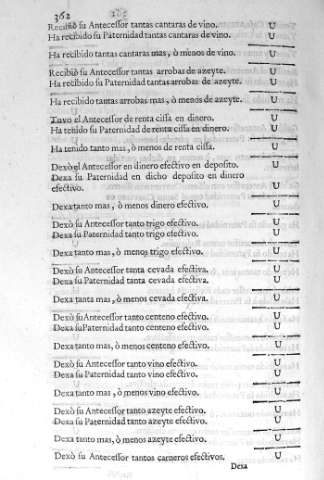 362
Recibiò su Antecessor tantas cantaras de vino. U
Ha recibido su Paternidad tantas cantaras de vino. U
Ha recibido tantas cantaras mas, ò menos de vino. U
Recibiò su Antecessor tantas arrobas de azeyte. U
Ha recibido su Paternidad tantas arrobas de azeyte. U
Ha recibido tantas arrobas mas, ò menos de azeyte. U
Tuvo el Antecessor de renta cissa en dinero. U
Ha tenido su Paternidad de renta cissa en dinero. U
Ha tenido tanto mas, ò menos de renta cissa. U
Dexò el Antecessor en dinero efectivo en deposito. U
Dexa su Paternidad en dicho deposito en dinero
efectivo. U
Dexa tanto mas, ò menos dinero efectivo. U
Dexò su Antecessor tanto trigo efectivo. U
Dexa su Paternidad tanto trigo efectivo. U
Dexa tanto mas, ò menos trigo efectivo. U
Dexò su Antecessor tanta cevada efectiva. U
Dexa su Paternidad tanta cevada efectiva. U
Dexa tanta mas, ò menos cevada efectiva. U
Dexò su Antecessor tanto centeno efectivo. U
Dexa su Paternidad tanto centeno efectivo. U
Dexa tanto mas, ò menos centeno efectivo. U
Dexò su Antecessor tanto vino efectivo. U
Dexa su Paternidad tanto vino efectivo. U
Dexa tanto mas, ò menos vino efectivo. U
Dexò su Antecessor tanto azeyte efectivo. U
Dexa su Paternidad tanto azeyte efectivo. U
Dexa tanto mas, ò menos azeyte efectivo. U
Dexò su Antecessor tantos carneros efectivos. U
Dexa